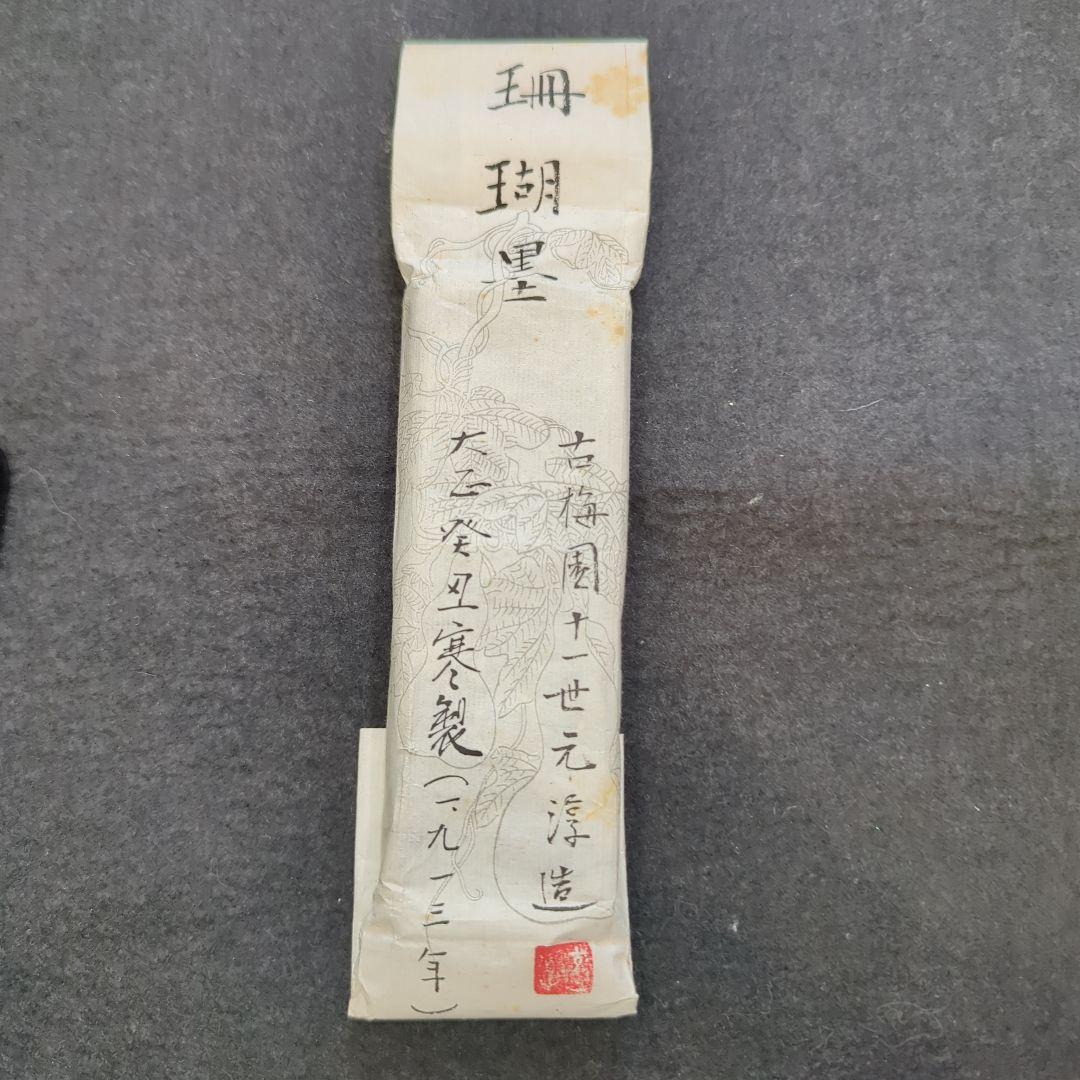 珊瑚墨
古梅園十一世元淳造
大正癸丑寒製（一九一三年）